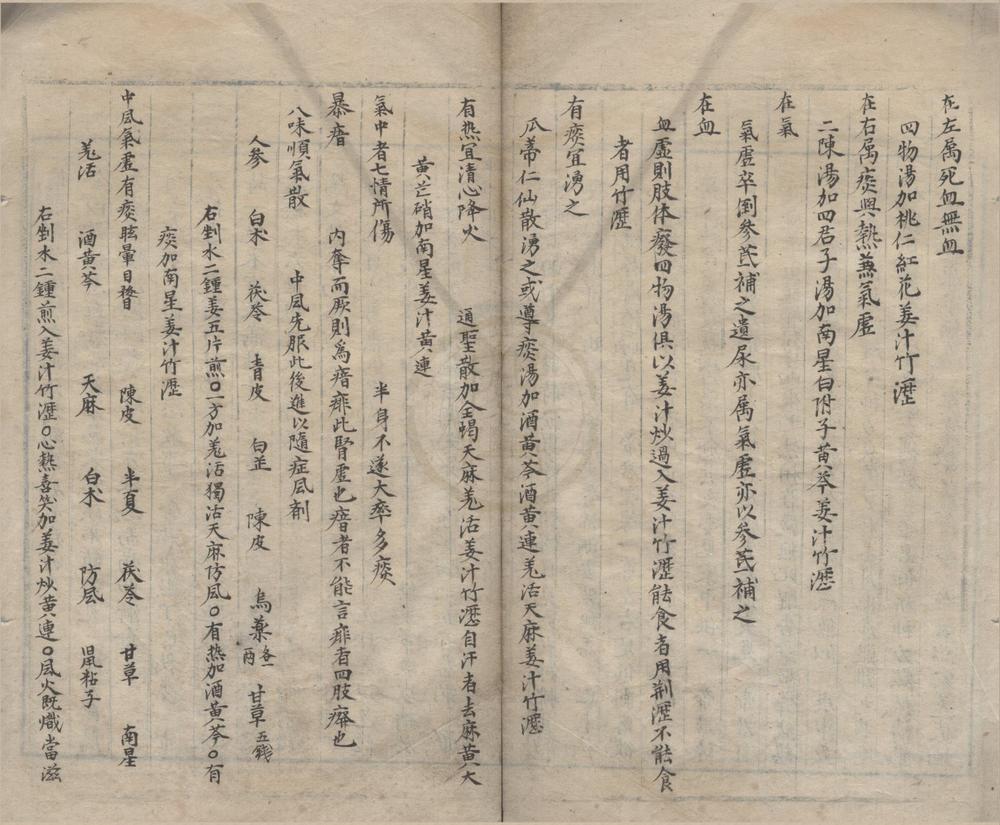 在左属死血無血
四物湯加桃仁紅花姜汁竹瀝
在右属痰與熱兼氣虛
二陳湯加四君子湯加南星白附子黃芩姜汁竹瀝
在氣
氣虛卒倒參芪補之遺尿亦属氣虛亦以參芪補之
在血
血虛則肢体癈四物湯俱以姜汁炒過入姜汁竹瀝能食者用荆瀝不能食
者用竹瀝
有痰宜湧之
瓜蒂仁仙散湧之或導痰湯加酒黃芩酒黃連羌活天麻姜汁竹瀝
有热宜清心降火 通聖散加全蝎天麻羌活姜汁竹瀝自汗者去麻黃大
黃芒硝加南星姜汁黃連
氣中者七情所傷 半身不遂大率多痰
暴瘖 内奪而厥則爲瘖痱此腎虛也瘖者不能言痱者四肢癖也
八味順氣散 中風先服此後進以隨症風剤
人參 白术 茯苓 青皮 白芷 陳皮 烏薬各一両 甘草五銭
右剉水二鍾姜五片煎〇一方加羌活獨活天麻防風〇有热加酒黃芩〇有
痰加南星姜汁竹瀝
中風氣虛有痰眩暈目瞀 陳皮 半夏 茯苓 甘草 南星
羌活 酒黃芩 天麻 白术 防風 鼠粘子
右剉水二鍾煎入姜汁竹瀝〇心熱喜笑加姜汁炒黃連〇風火既熾當滋